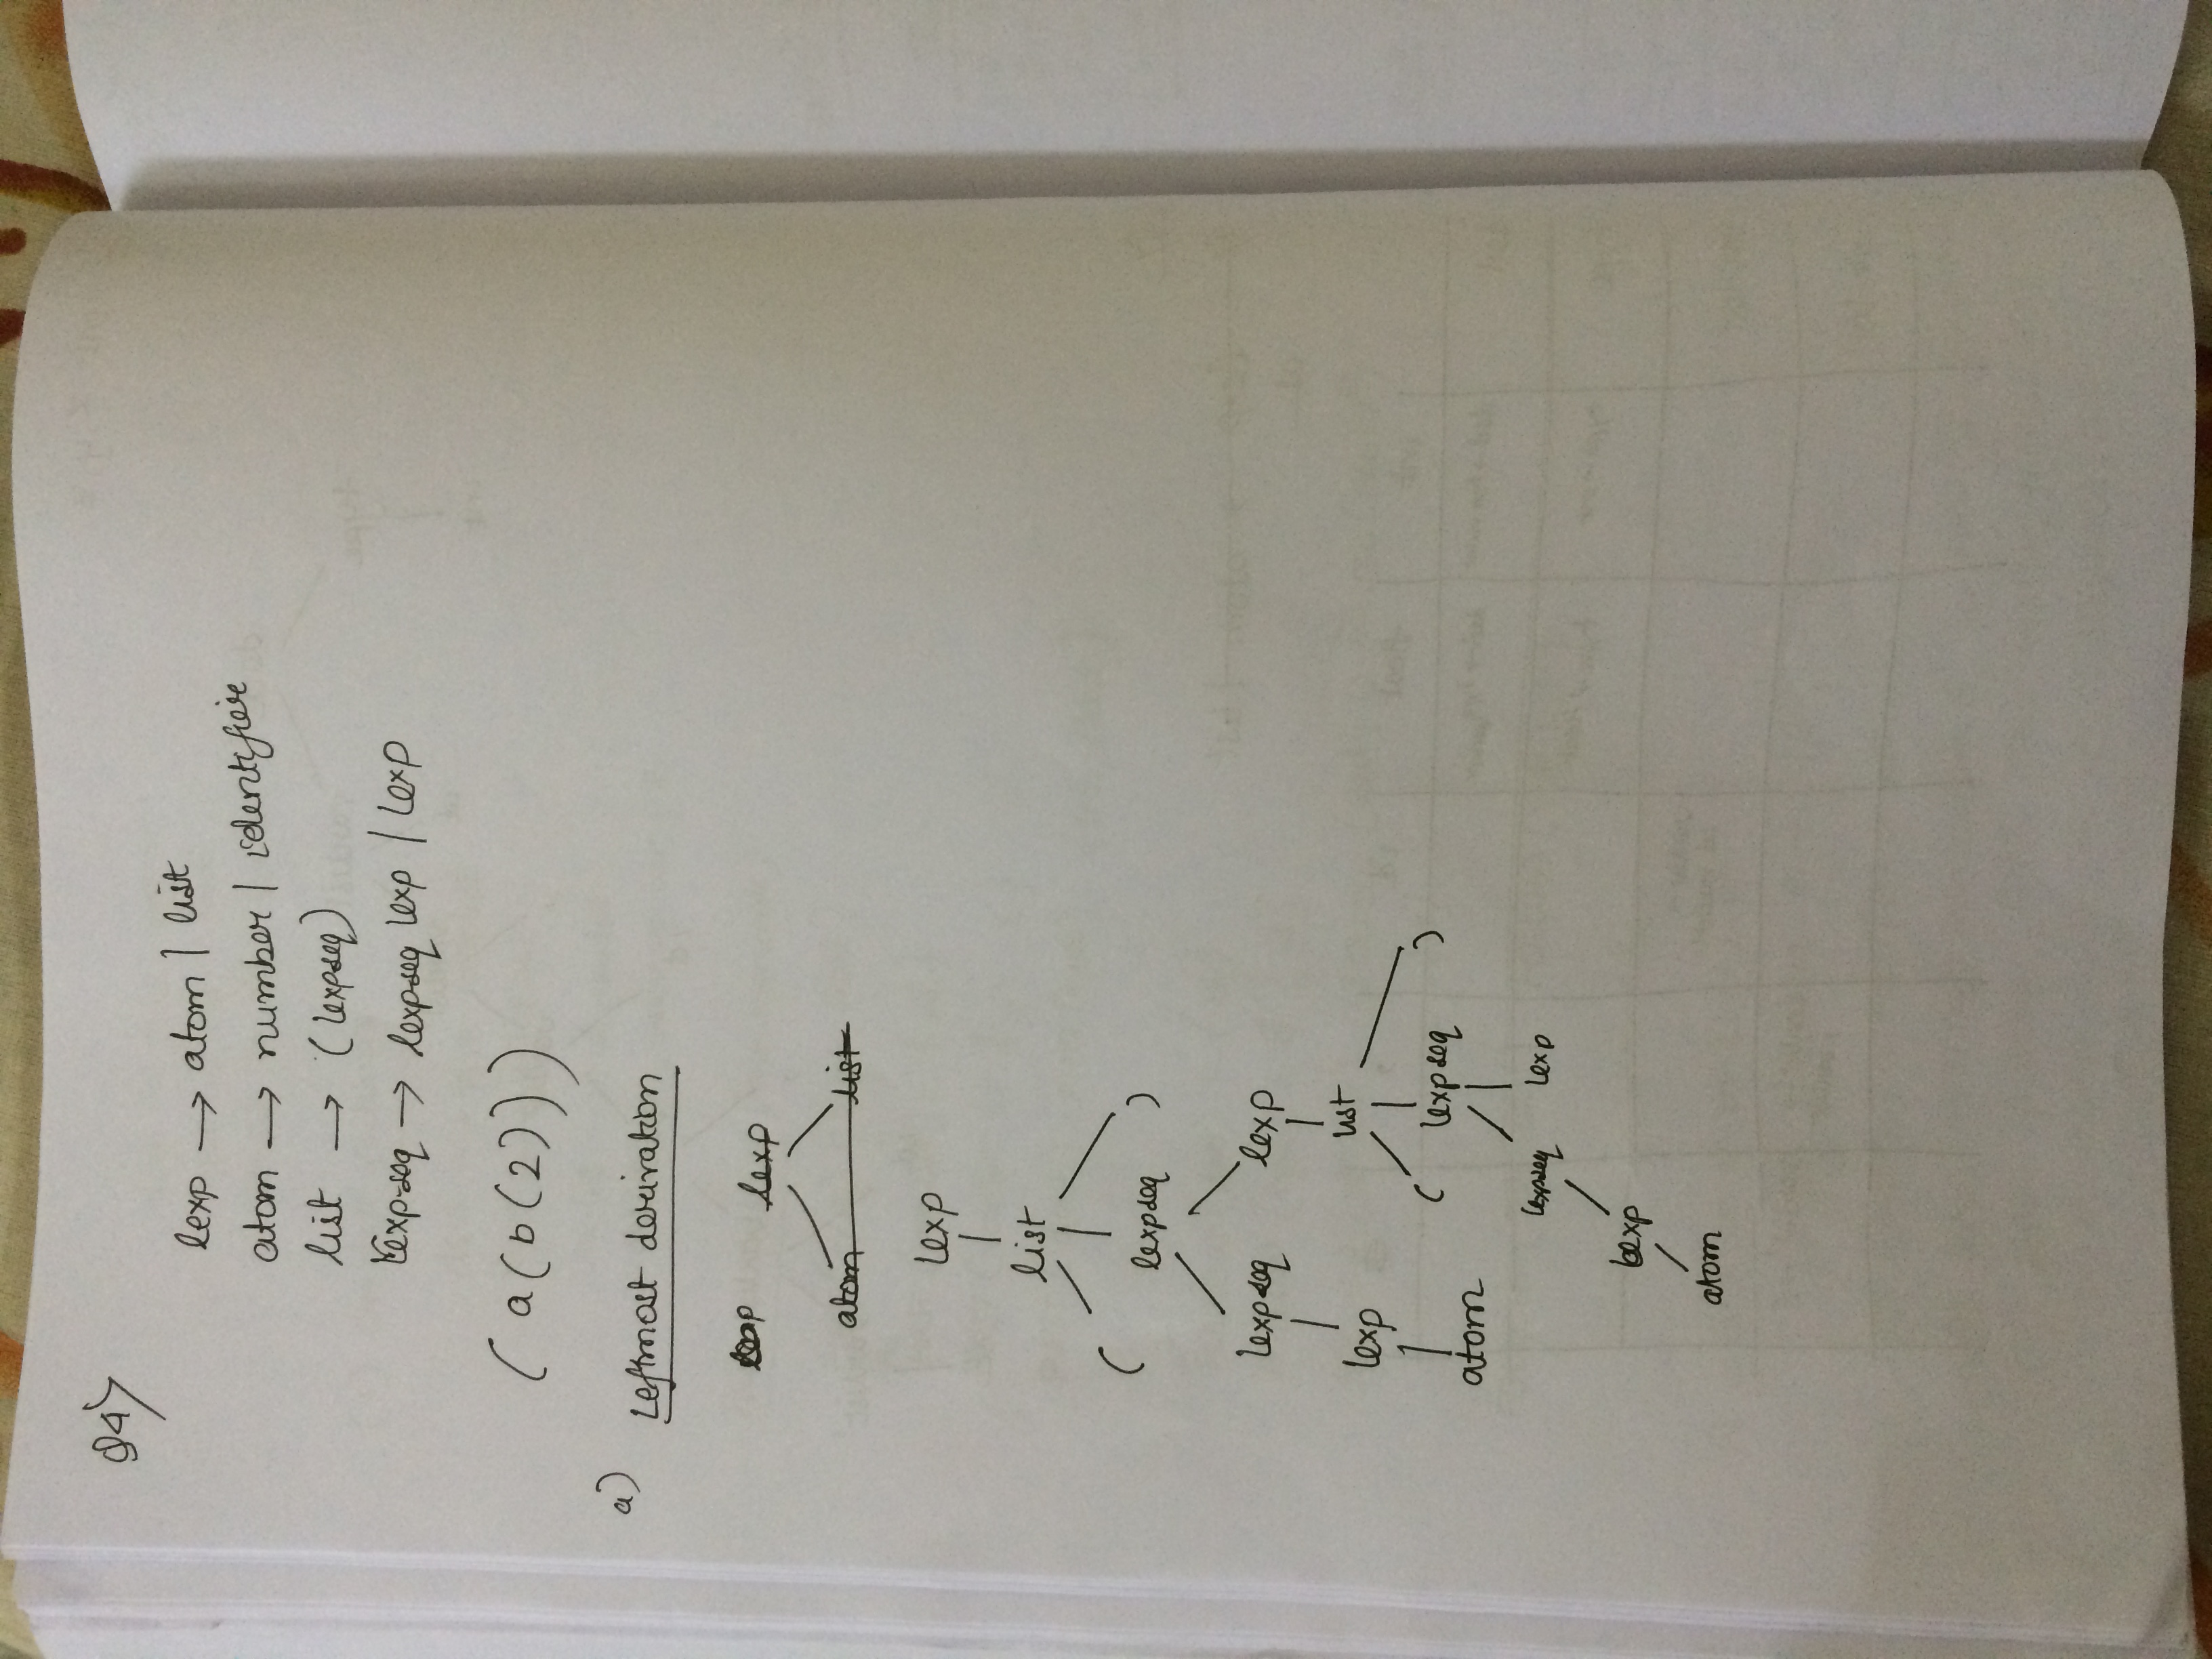 Q4)
lexp → atom | list
atom → number | identifier
list → (lexpseq)
lexp-seq → lexpseq lexp | lexp
( a ( b ( 2 ) ) )
a)
Leftmost derivation
lexp
atom list
lexp
list
( lexpseq )
lexpseq lexp
lexp list
( lexpseq )
atom
lexpseq lexp
lexp
atom